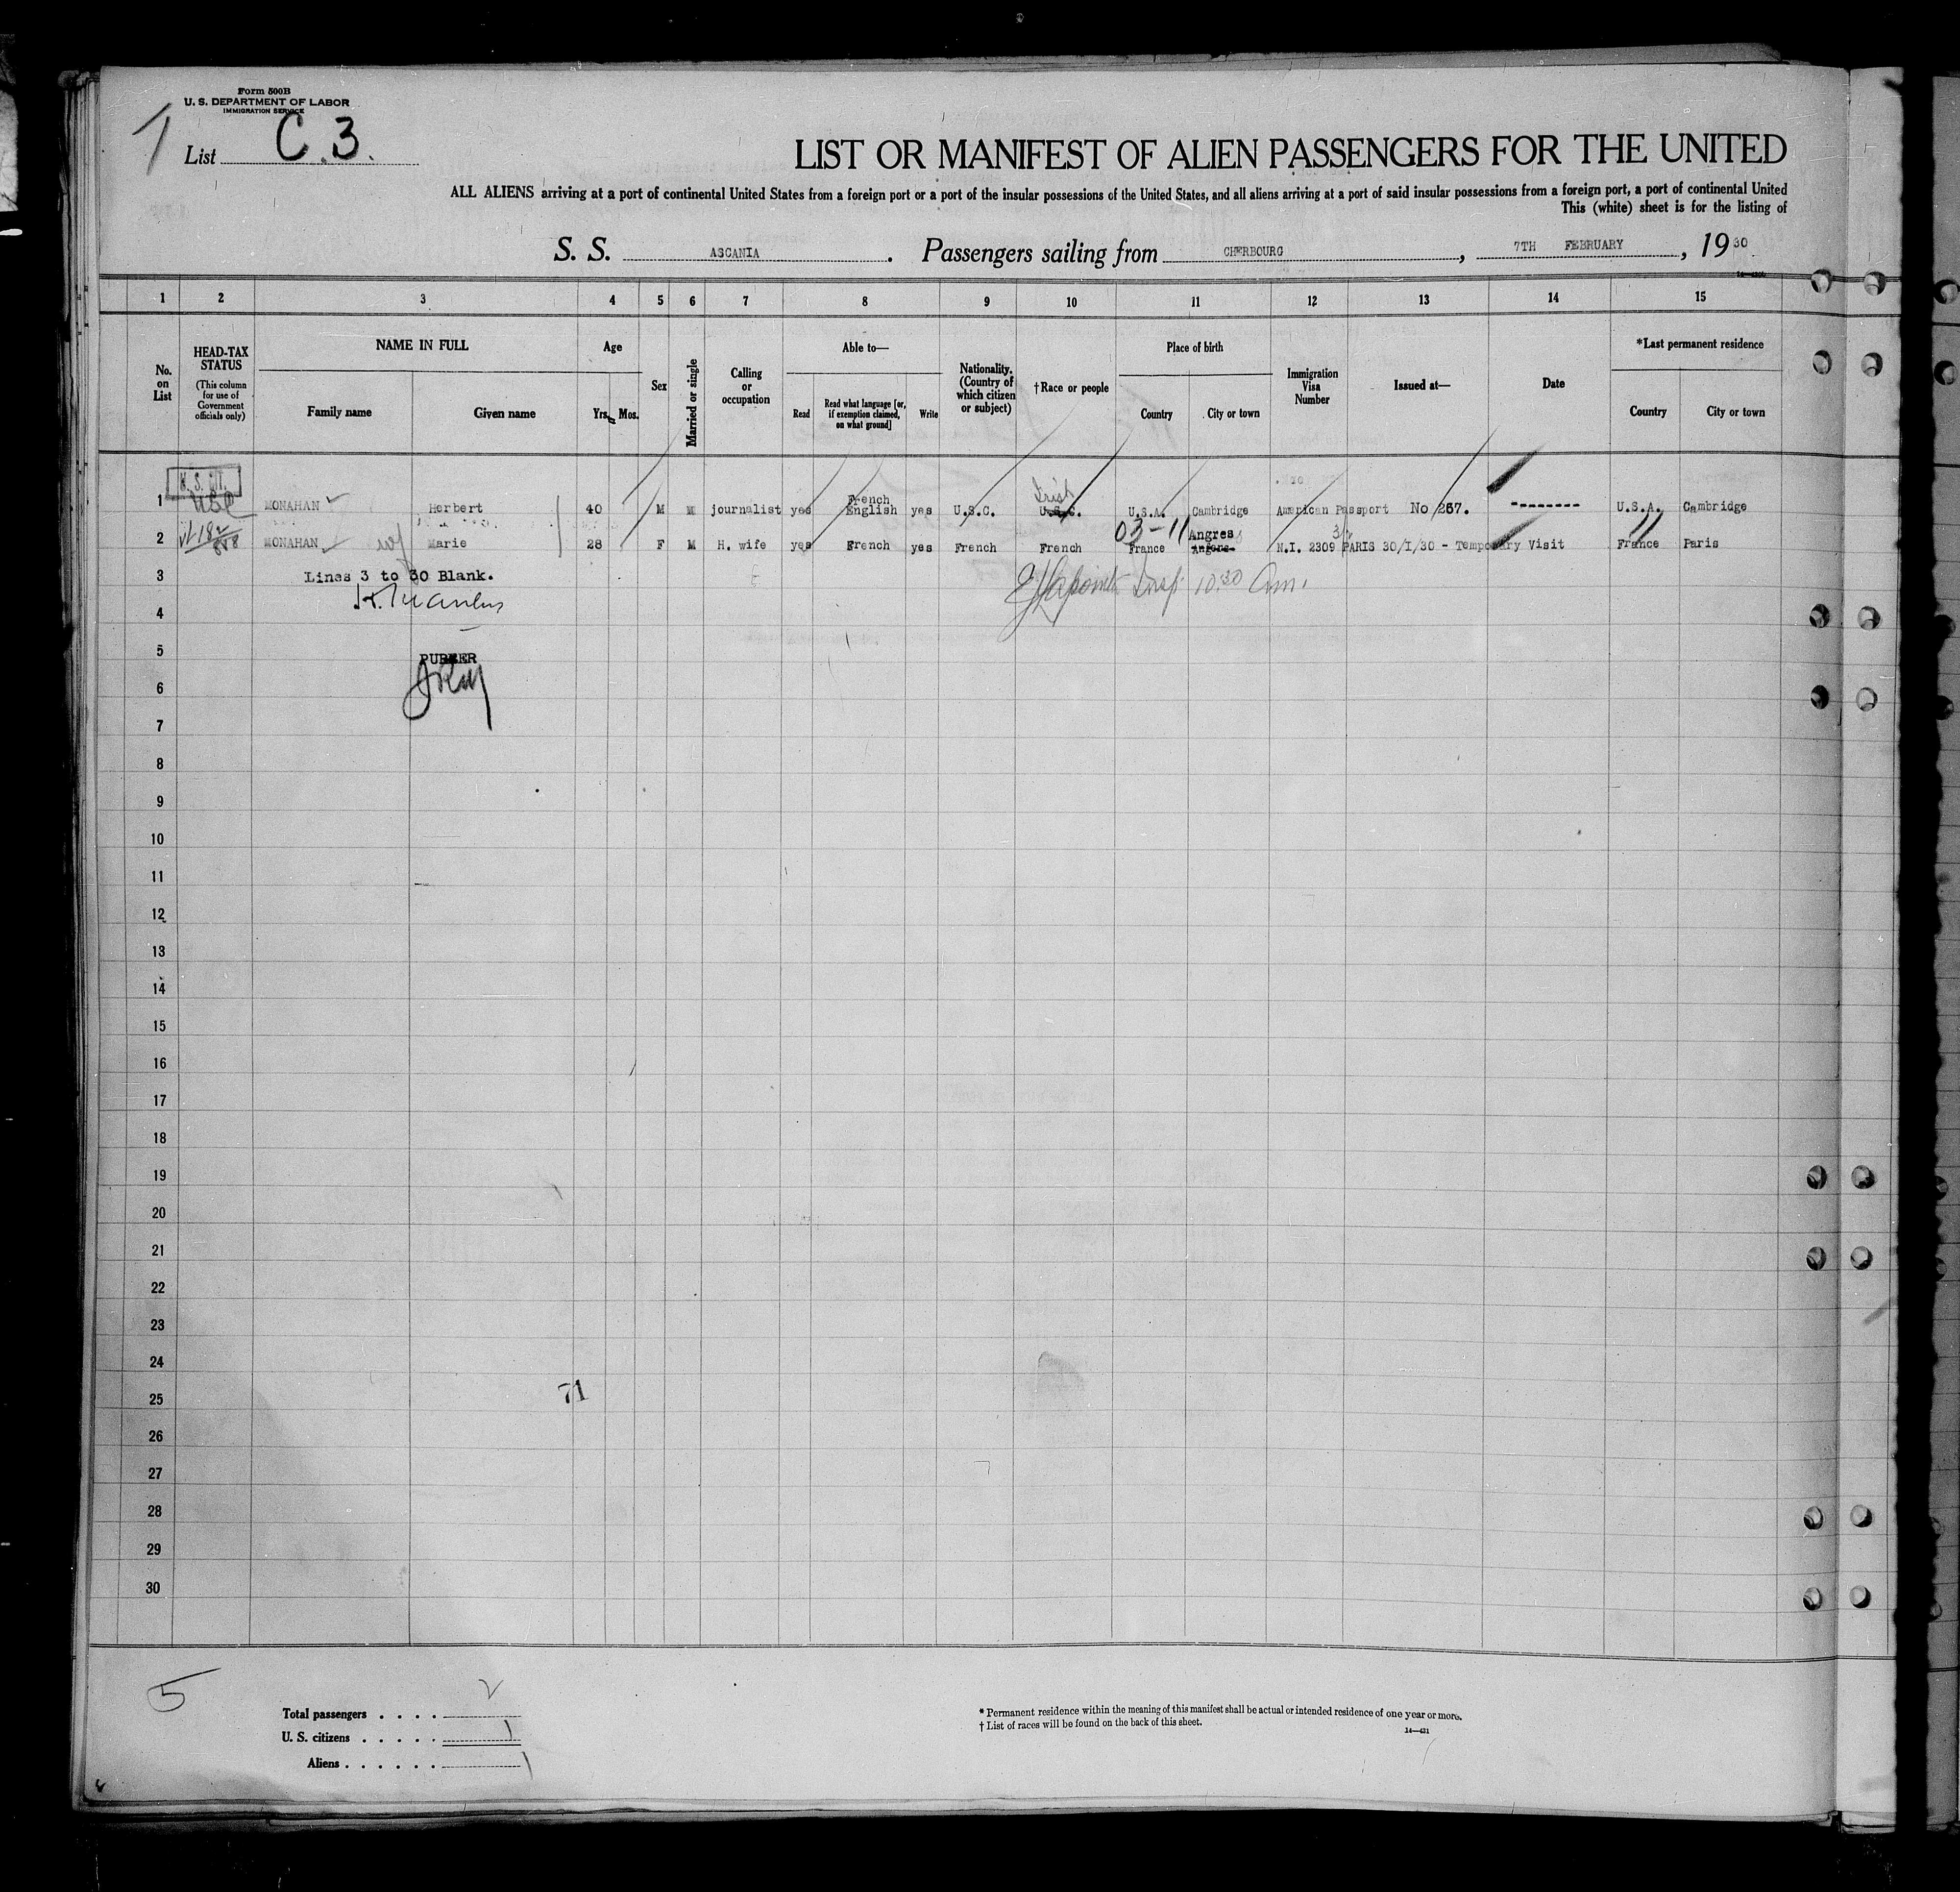 Form 500B
U. S. DEPARTMENT OF LABOR
IMMIGRATION SERVICE
List C. 3.
LIST OR MANIFEST OF ALIEN PASSENGERS FOR THE UNITED
ALL ALIENS arriving at a port of continental United States from a foreign port or a port of the insular possessions of the United States, and all aliens arriving at a port of said insular possessions from a foreign port, a port of continental United
This (white) sheet is for the listing of
S. S. ASCANIA. Passengers sailing from CHERBOURG, 7TH FEBRUARY, 1930
1 2 3 4 5 6 7 8 9 10 11 12 13 14 15
No. on List
HEAD-TAX STATUS (This column for use of Government officials only)
NAME IN FULL
Family name Given name
Age
Yrs. Mos.
Sex
Married or single
Calling or occupation
Able to—
Read Read what language [or, if exemption claimed, on what ground] Write
Nationality. (Country of which citizen or subject)
†Race or people
Place of birth
Country City or town
Immigration Visa Number
Issued at—
Date
*Last permanent residence
Country City or town
U. S. CIT.
USC
1 MONAHAN Herbert 40 M M journalist yes French English yes U.S.C. Irish U.S.C. U.S.A. Cambridge American Passport No 267. -------- U.S.A. Cambridge
03-11 Angres
2 MONAHAN wf Marie 28 F M H. wife yes French yes French French France Angers N.I. 2309 PARIS 30/I/30 - Temporary Visit France Paris
3 Lines 3 to 30 Blank.
Insp. 10:30 Am.
4
5 PURSER
6
7
8
9
10
11
12
13
14
15
16
17
18
19
20
21
22
23
24
25 71
26
27
28
29
30
5
Total passengers . . . . 2
U. S. citizens . . . . . 1
Aliens . . . . . . 1
* Permanent residence within the meaning of this manifest shall be actual or intended residence of one year or more.
† List of races will be found on the back of this sheet.
14—421